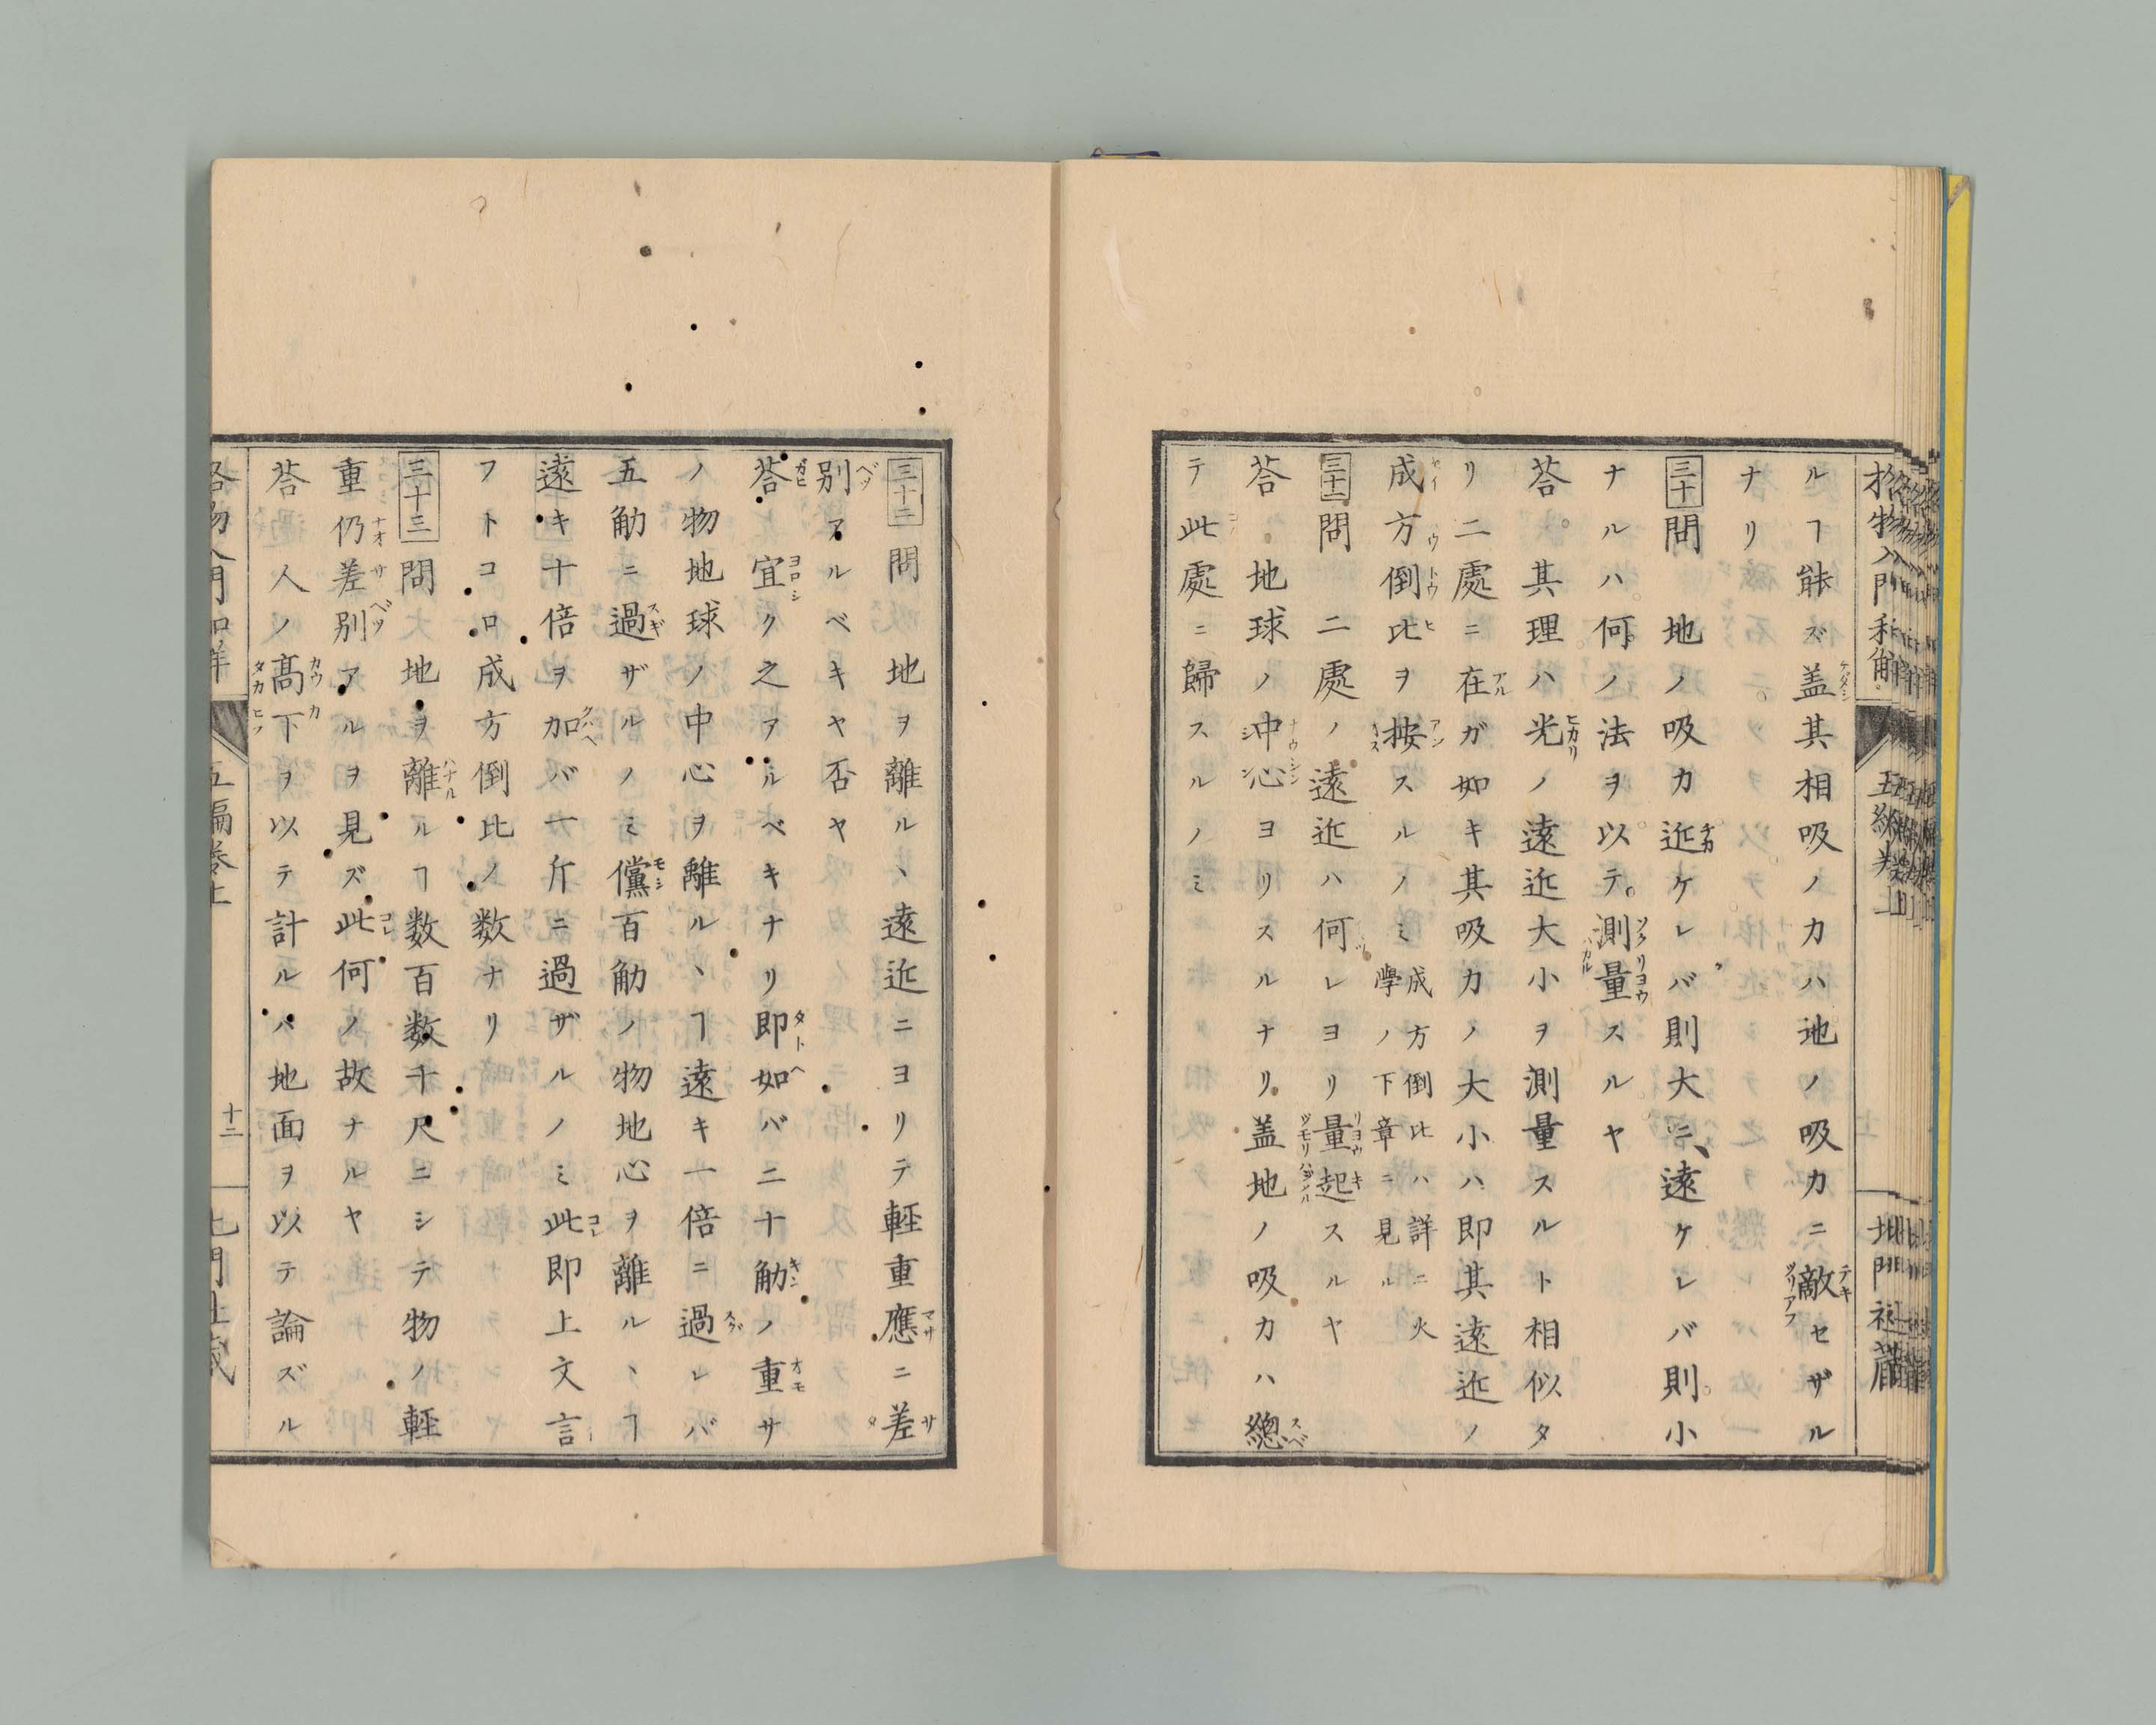 格物入門和解
五編巻上
北門社蔵
ルヿ能ズ盖其相吸ノ力ハ地ノ吸力ニ敵セザル
ナリ
三十 問 地ノ吸力近ケレバ則大ニ、遠ケレバ則小
ナルハ何ノ法ヲ以テ測量スルヤ
荅 其理ハ光ノ遠近大小ヲ測量スルト相似タ
リ二處ニ在ガ如キ其吸力ノ大小ハ即其遠近ノ
成方倒比ヲ按スルノミ 成方倒比ハ詳ニ火學ノ下章ニ見ル
三十一 問 二處ノ遠近ハ何レヨリ量起スルヤ
荅 地球ノ冲心ヨリスルナリ盖地ノ吸力ハ總
テ此處ニ歸スルノミ
三十二 問 地ヲ離ル、遠近ニヨリテ輕重應ニ差
別アルベキヤ否ヤ
荅 宜ク之アルベキナリ即如バ二十觔ノ重サ
ノ物地球ノ中心ヲ離ル、ヿ遠キ一倍ニ過レバ
五觔ニ過ザルノミ儻百觔ノ物地心ヲ離ル、ヿ
遠キ十倍ヲ加バ一斤ニ過ザルノミ此即上文言
フトコロ成方倒比ノ数ナリ
三十三 問 地ヲ離ルヿ数百数千尺ニシテ物ノ輕
重仍差別アルヲ見ズ此何ノ故ナルヤ
荅 人ノ髙下ヲ以テ計ルハ地面ヲ以テ論ズル
格物入門和解
五編巻上
十二
北門社蔵